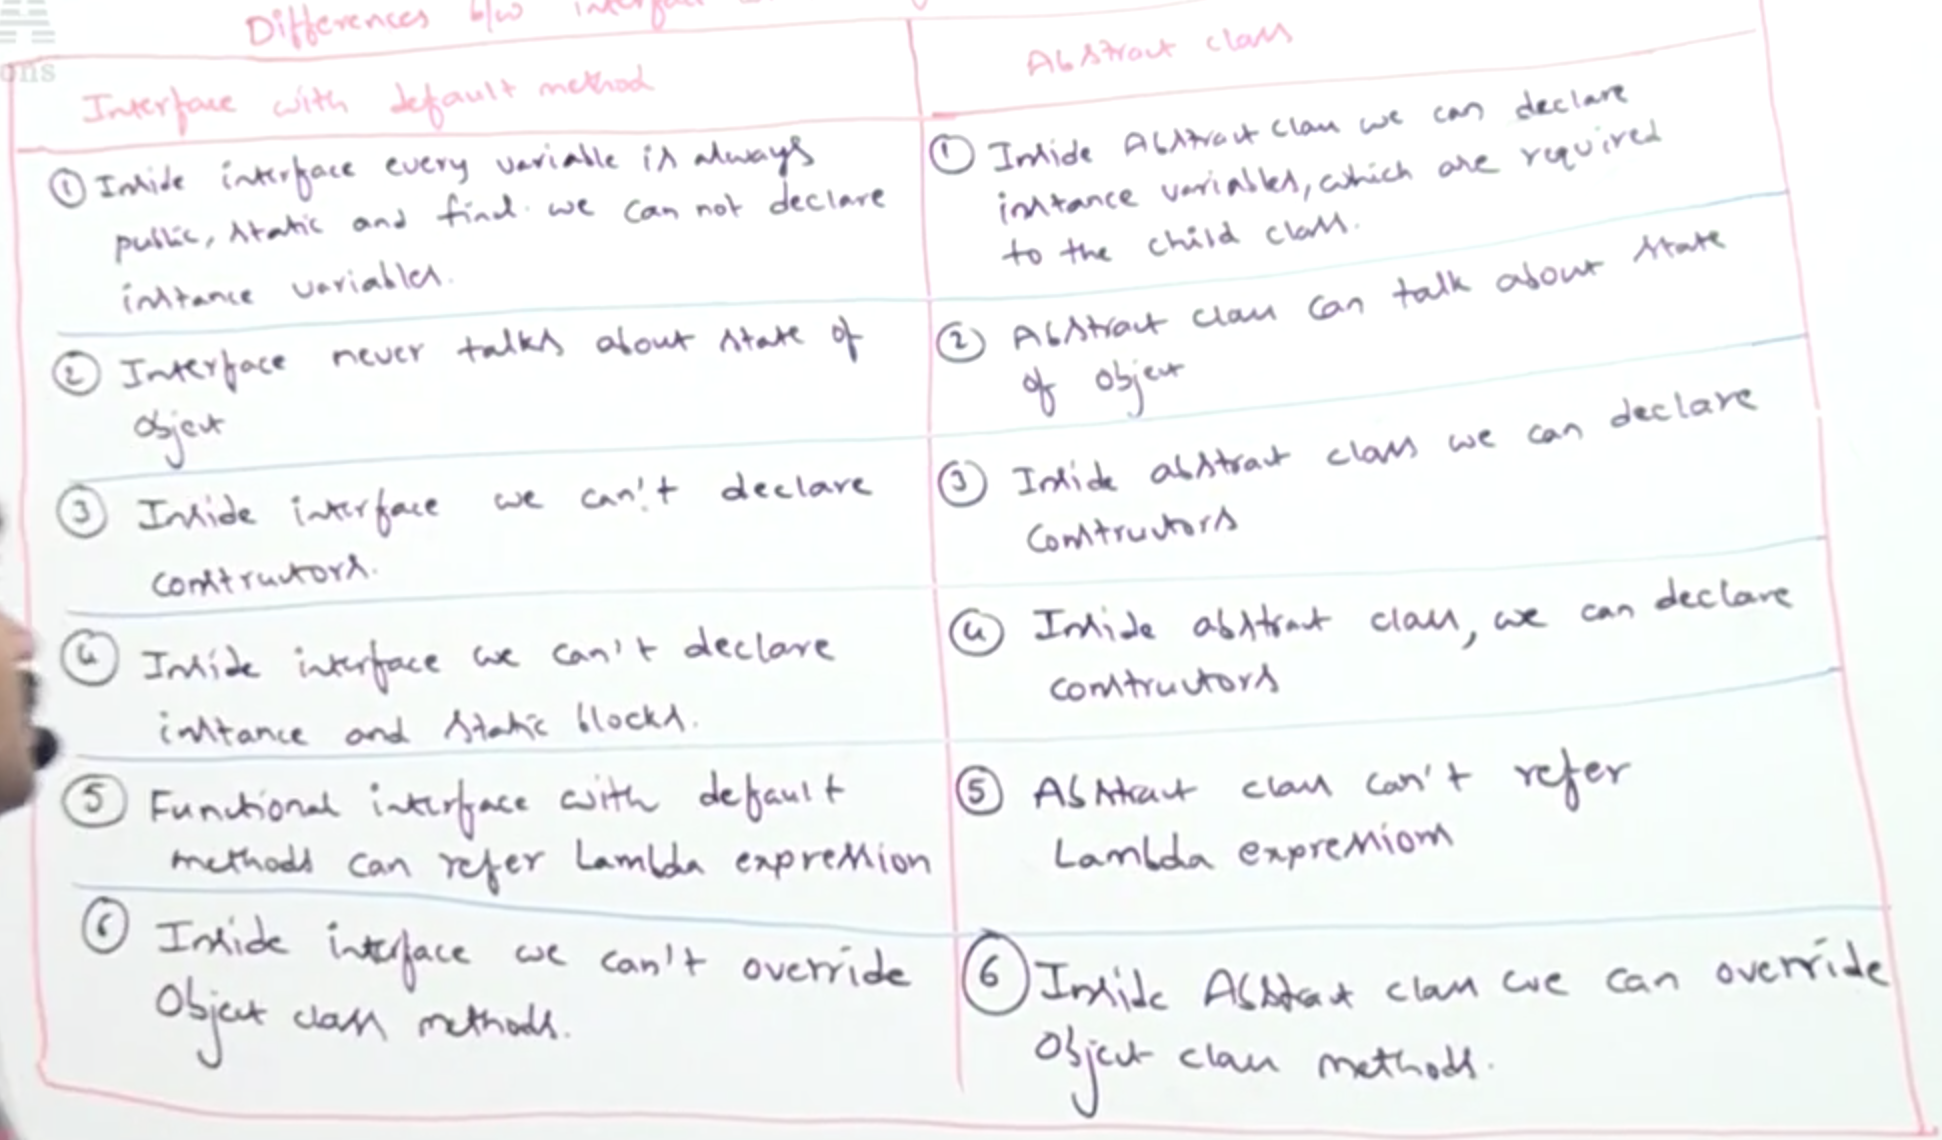 ons
Differences b/w
Interface with default method
Abstract class
① Inside interface every variable is always
public, static and final. we can not declare
instance variables.
① Inside Abstract class we can declare
instance variables, which are required
to the child class.
② Interface never talks about state of
object
② Abstract class can talk about state
of object
③ Inside interface we can't declare
constructors.
③ Inside abstract class we can declare
constructors
④ Inside interface we can't declare
instance and static blocks.
④ Inside abstract class, we can declare
constructors
⑤ Functional interface with default
methods can refer Lambda expression
⑤ Abstract class can't refer
Lambda expressions
⑥ Inside interface we can't override
Object class methods.
⑥ Inside Abstract class we can override
Object class methods.